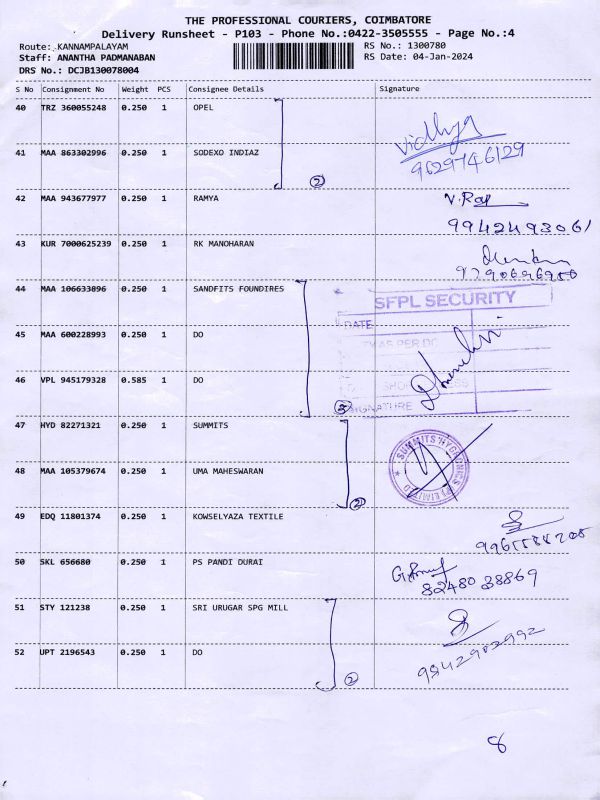 THE PROFESSIONAL COURIERS, COIMBATORE
Delivery Runsheet - P103 - Phone No.:0422-3505555 - Page No.:4
Route: KANNAMPALAYAM RS No.: 1300780
Staff: ANANTHA PADMANABAN RS Date: 04-Jan-2024
DRS No.: DCJB130078004
S No Consignment No Weight PCS Consignee Details Signature
40 TRZ 360055248 0.250 1 OPEL
Vidhya
9629746129
41 MAA 863302996 0.250 1 SODEXO INDIAZ
2
42 MAA 943677977 0.250 1 RAMYA V.Raj
9942493061
43 KUR 7000625239 0.250 1 RK MANOHARAN
44 MAA 106633896 0.250 1 SANDFITS FOUNDIRES
SFPL SECURITY
DATE
45 MAA 600228993 0.250 1 DO
AS PER DC
46 VPL 945179328 0.585 1 DO
SIGNATURE
3
47 HYD 82271321 0.250 1 SUMMITS
SUMMITS HYGRONICS P LIMITED
48 MAA 105379674 0.250 1 UMA MAHESWARAN
2
49 EDQ 11801374 0.250 1 KOWSELYAZA TEXTILE
50 SKL 656680 0.250 1 PS PANDI DURAI
82480 38869
51 STY 121238 0.250 1 SRI URUGAR SPG MILL
52 UPT 2196543 0.250 1 DO
9842902992
2
8